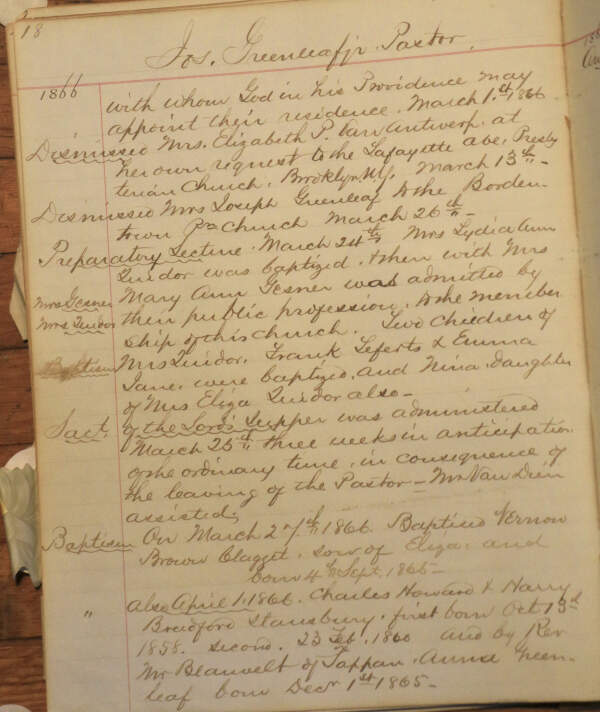 18
Jos. Greenleaf jr. Pastor.
1866 with whom God in his Providence may
appoint their residence. March 1.st 1866
Dismissed Mrs. Elizabeth P. Van Antwerp. at
her own request to the Lafayette ave, Presby
terian Church, Brooklyn NY. March 13th
Dismissed Mrs Joseph Greenleaf to the Borden-
town Church March 26th
Preparatory Lecture. March 24th Mrs Lydia Ann
Quidor was baptized. & then with Mrs
Mrs Gesner Mary Ann Gesner was admitted by
Mrs Quidor their public profession, to the member
ship of this church. Two Children of
Baptism Mrs Quidor. Frank Leferts & Emma
Jane. were baptized, and Nina. Daughter
of Mrs Eliza Quidor also-
Sact. of the Lord's Supper was administered
March 25th three weeks in anticipation
of the ordinary time, in consequence of
the leaving of the Pastor - Mr Van Dien
assisted,
Baptism On March 27th 1866. Baptised Vernon
Brown Clagget. son of Eliza. and
born 4th Sept. 1865-
" also April 1. 1866. Charles Howard & Harry
Bradford Stansbury. first born Oct 13d
1858. second. 23 Feb. 1860 and by Rev
Mr Blauvelt of Tappan. Anna Green-
leaf born Decr 1st 1865-